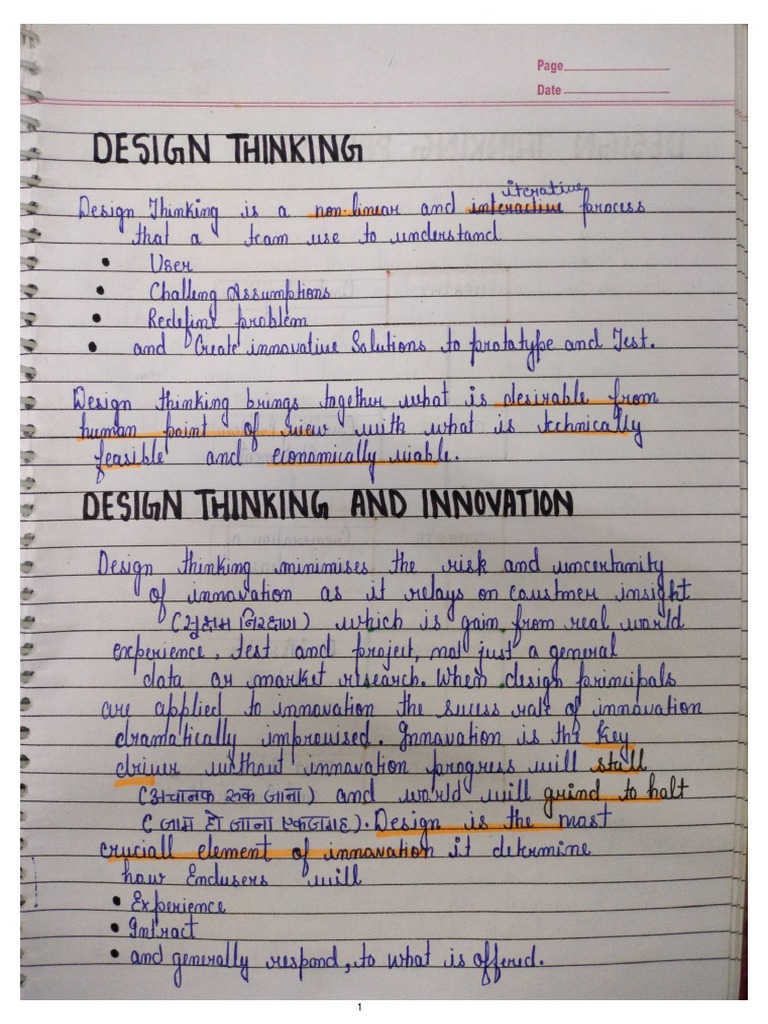 Page
Date
DESIGN THINKING
iterative
Design Thinking is a non-linear and interactive process
that a team use to understand
• User
• Challeng Assumptions
• Redefine problem
• and Create innovative Solutions to prototype and Test.
Design thinking brings together what is desirable from
human point of view with what is technically
feasible and economically viable.
DESIGN THINKING AND INNOVATION
Design thinking minimises the risk and uncertainity
of innovation as it relays on coustmer insight
(सुक्षम निरक्षण) which is gain from real world
experience, test and project, not just a general
data or market research. When design prinipals
are applied to innovation the sucess rate of innovation
dramatically improvised. Innovation is the key
driver without innovation progress will stall
(अचानक रूक जाना) and world will grind to halt
(जाम हो जाना एकजगह). Design is the most
cruciall element of innovation it determine
how Endusers will
• Experience
• Intract
• and generally respond, to what is offered.
1